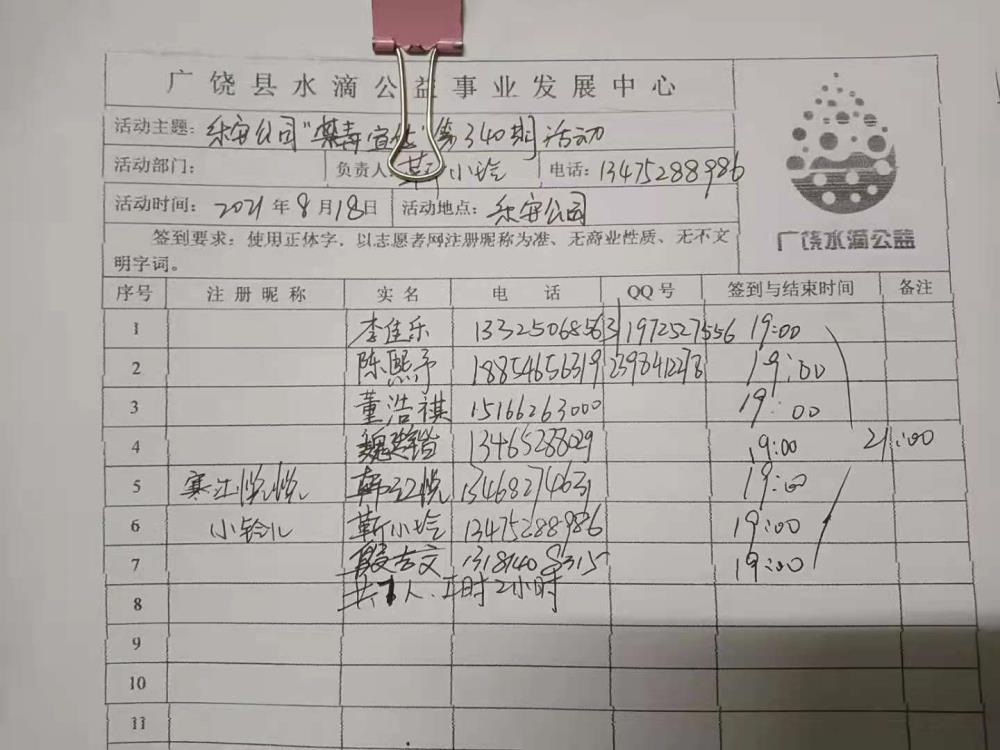 广饶县水滴公益事业发展中心
活动主题：乐安公园"禁毒宣传"第340期活动
活动部门： 负责人 靳小玲 电话：13475288986
活动时间：2021年8月18日 活动地点：乐安公园
签到要求：使用正体字，以志愿者网注册昵称为准、无商业性质、无不文
明字词。
广饶水滴公益
序号 注册昵称 实名 电话 QQ号 签到与结束时间 备注
1 李佳乐 13325068563 1972527556 19:00
2 陈熙予 18854656319 2398412278 19:00
3 董浩祺 15166263000 19:00
4 魏 13465288029 19:00 21:00
5 寒江悦悦 韩江悦 13468274631 19:00
6 小铃儿 靳小玲 13475288986 19:00
7 殷吉文 13181408315 19:00
8 共7人、工时2小时
9
10
11